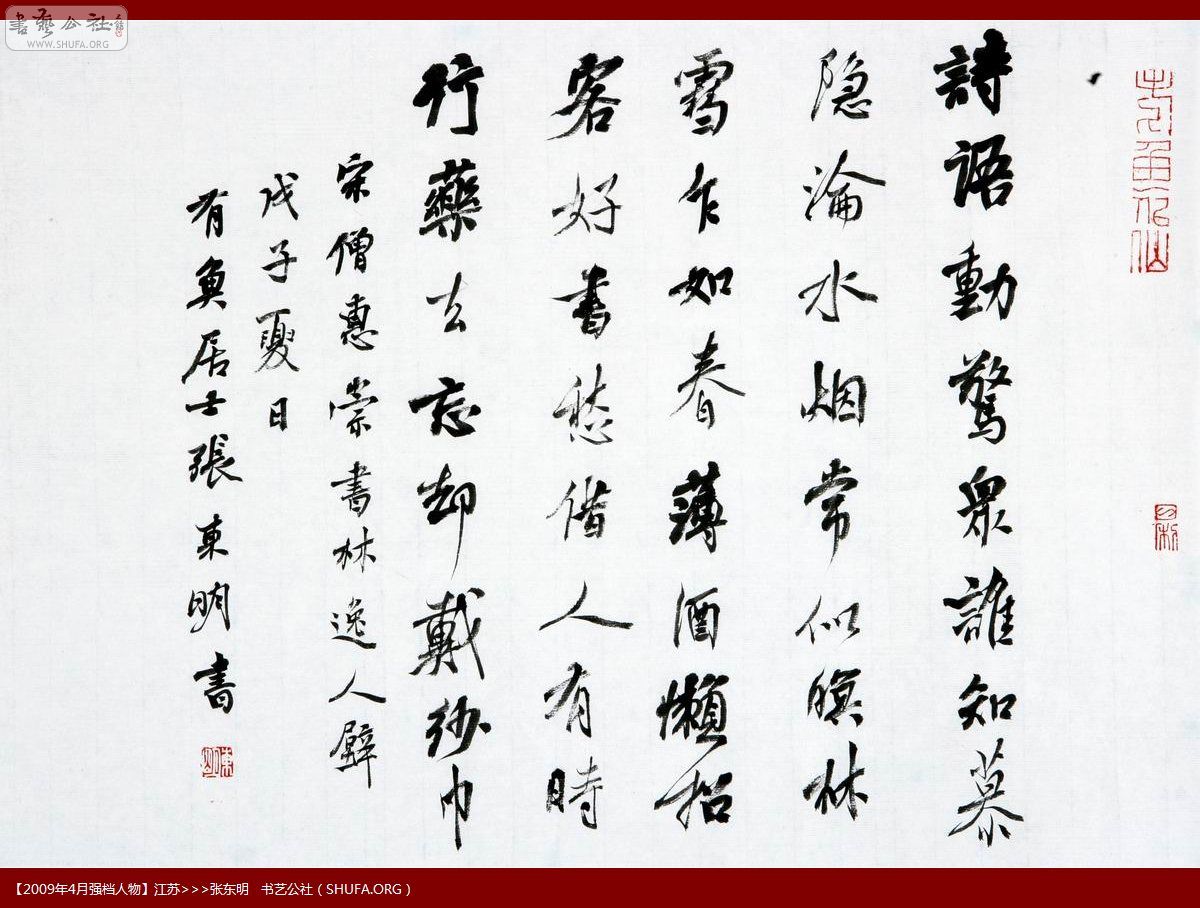 書藝公社
WWW.SHUFA.ORG
詩語動驚眾誰知慕
隐淪水烟常似暝林
雪乍如春薄酒懶招
客好書愁借人有時
行藥去忘却戴紗巾
宋僧惠崇書林逸人壁
戊子夏日
有魚居士張東明書
東明
【2009年4月强档人物】江苏>>>张东明 书艺公社（SHUFA.ORG）